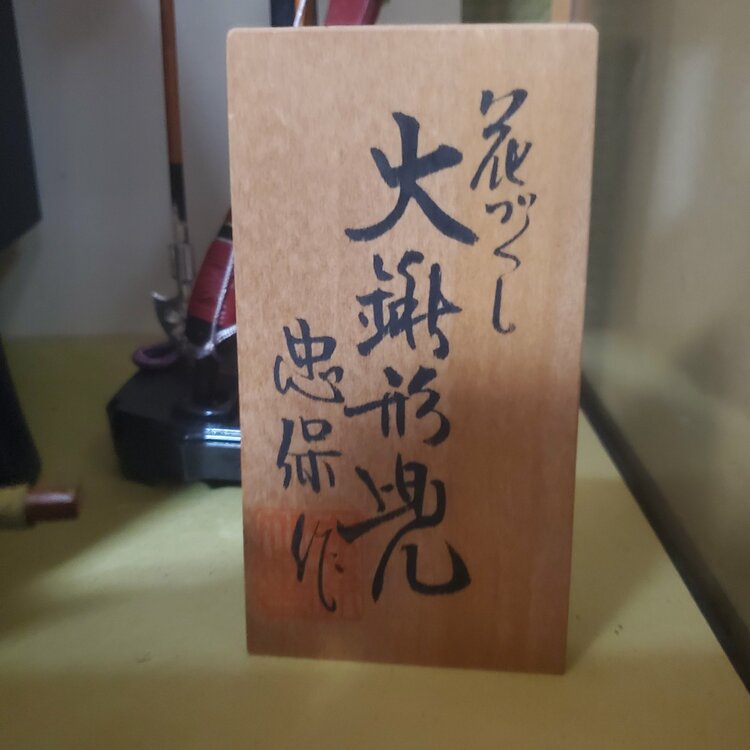 花づくし
火鍬形兜
忠保作